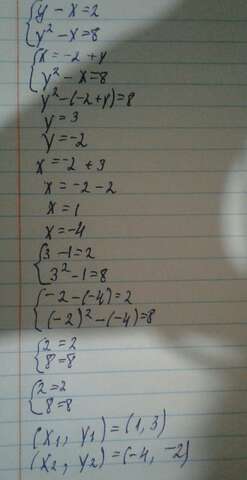 y - x = 2
y² - x = 8
x = -2 + y
y² - x = 8
y² - (-2 + y) = 8
y = 3
y = -2
x = -2 + 3
x = -2 - 2
x = 1
x = -4
3 - 1 = 2
3² - 1 = 8
-2 - (-4) = 2
(-2)² - (-4) = 8
2 = 2
8 = 8
2 = 2
8 = 8
(x₁, y₁) = (1, 3)
(x₂, y₂) = (-4, -2)